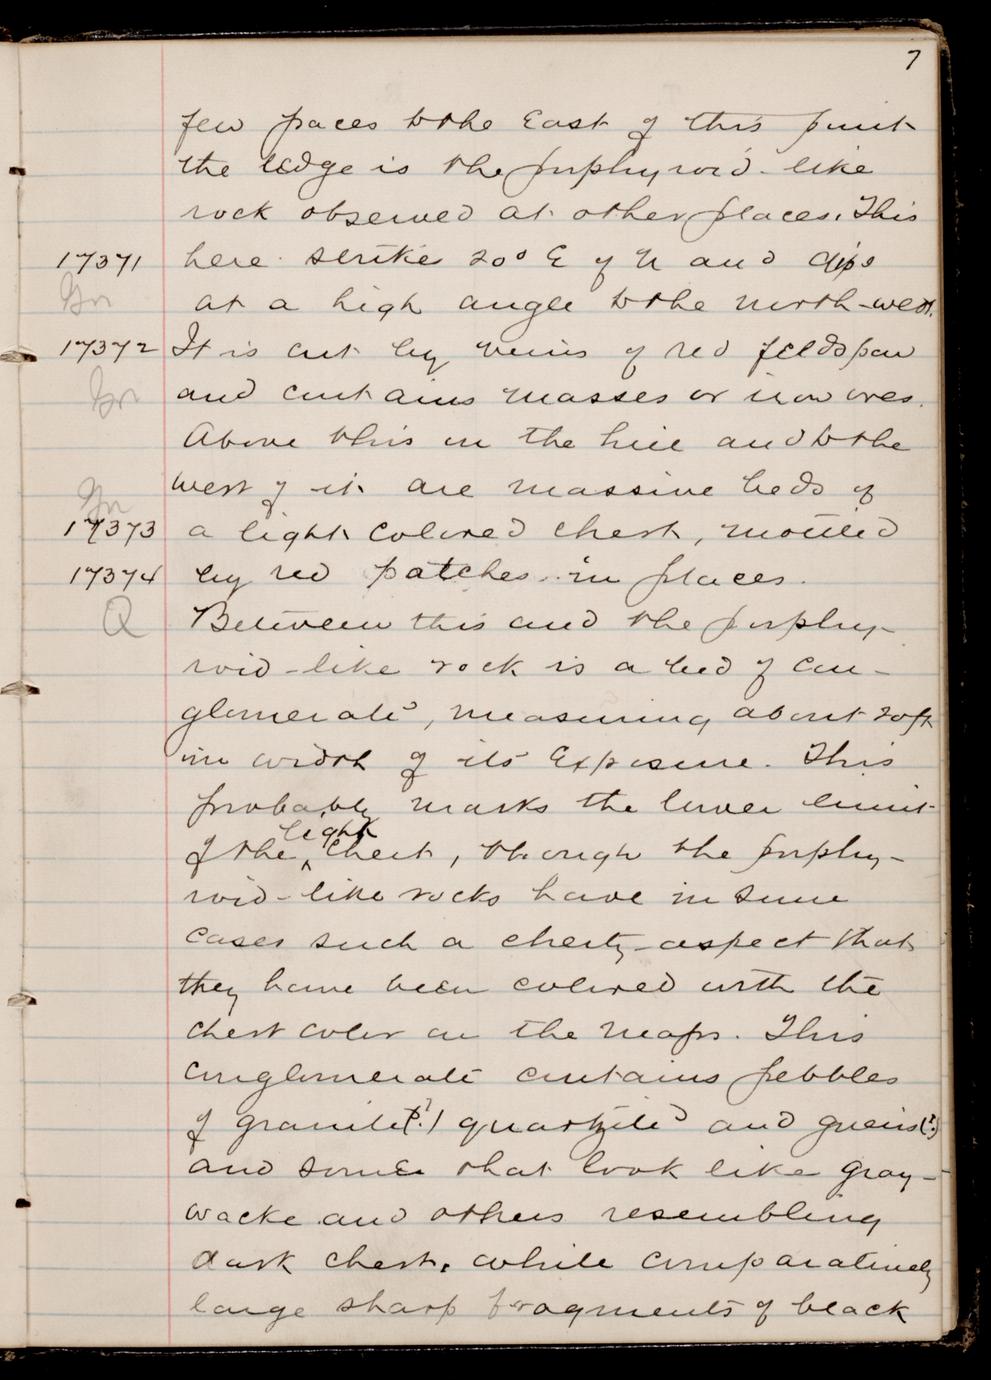 7
few paces to the East of this point
the ledge is the porphyroid-like
rock observed at other places. This
17371 here strikes 20° E of N and dips
Gn at a high angle to the north-west.
17372 It is cut by veins of red feldspar
Gn and contains masses or iron ores.
Above this on the hill and to the
west of it are massive beds of
Gn
17373 a light colored chert, mottled
17374 by red patches in places.
Q Between this and the porphy-
roid-like rock is a bed of con-
glomerate, measuring about 20ft
in width of its Exposure. This
probably marks the lower limit
of the light chert, though the porphy-
roid-like rocks have in some
cases such a cherty aspect that
they have been colored with the
chert color on the maps. This
conglomerate contains pebbles
of granite(?) quartzite and gneiss(?)
and some that look like gray-
wacke and others resembling
dark chert, while comparatively
large sharp fragments of black